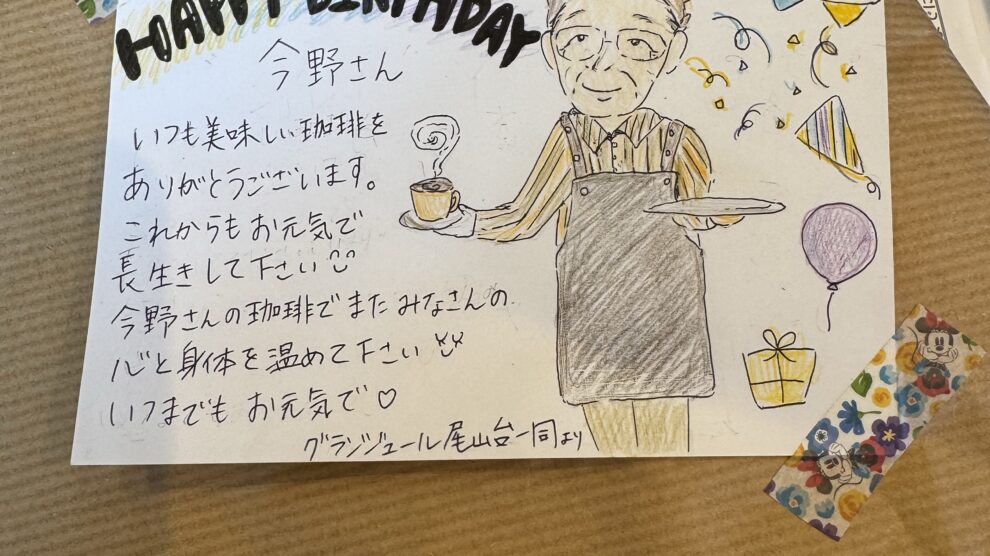 HAPPY BIRTHDAY
今野さん
いつも美味しい珈琲を
ありがとうございます。
これからもお元気で
長生きして下さい
今野さんの珈琲でまたみなさんの
心と身体を温めて下さい
いつまでもお元気で♡
グランジュール尾山台一同より